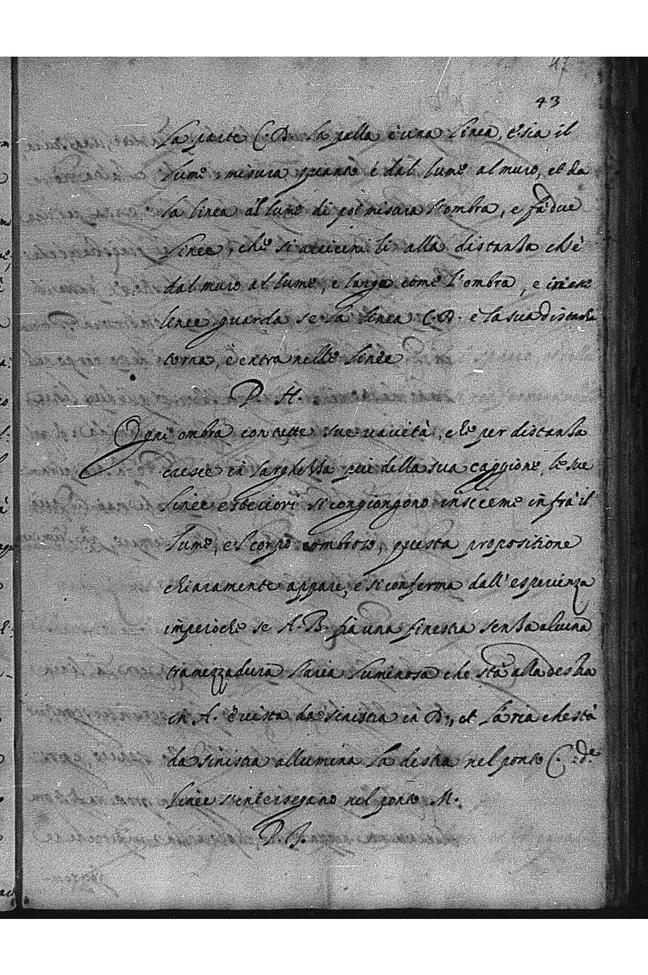 47
43
la parte C.D. la palla è una linea, e sia il
lume, misura quanto è dal lume al muro, et da
la linea al lume di poi misura l'ombra, e fa due
linee, che si avicini li alla distanza ch'è
dal muro al lume, e larga come l'ombra, e in esse
linee guarda se la linea C.D. e la sua distanza
torna, ò entra nelle linee
P. H.
Ogni ombra con tutte sue varietà, che per distanza
cresce in larghezza piú della sua caggione, le sue
linee esteriori si congiongono insieme infra il
lume, e'l corpo ombroso, questa propositione
chiaramente appare, e si conferma dall'esperienza
imperòche se A.B. fia una finestra senza alcuna
tramezzadura l'aria luminosa che stà alla destra
in A. è vista da sinistra in D., et l'aria che stà
da sinistra allumina la destra nel ponto C. et de
linee s'intersegano nel ponto M.